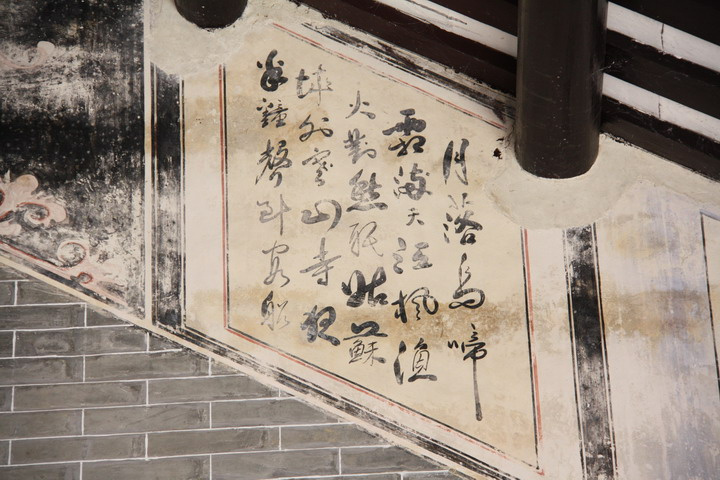 月落烏啼
霜滿天江楓漁
火對愁眠姑蘇
城外寒山寺夜
半鐘聲到客船